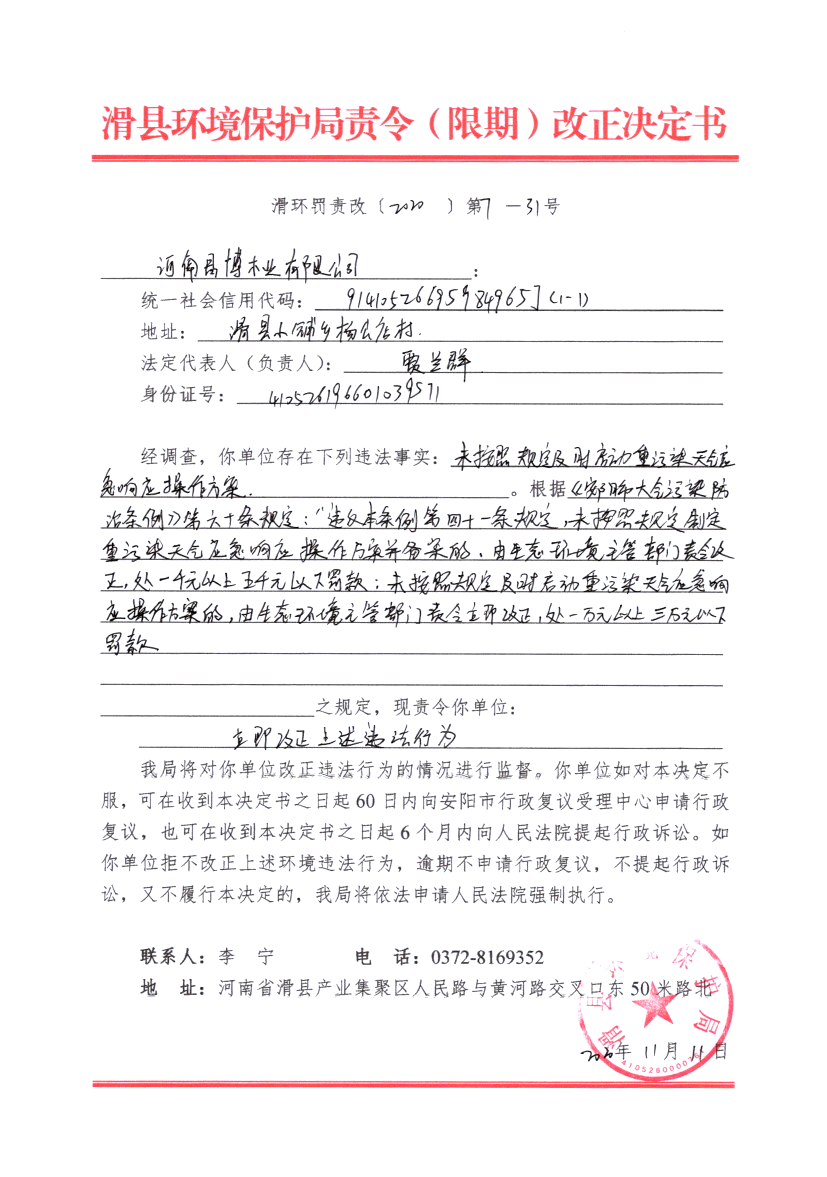 滑县环境保护局责令（限期）改正决定书
滑环罚责改〔2020 〕第7－31号
河南昌博木业有限公司：
统一社会信用代码： (1-1)
地址：滑县小铺乡杨公店村.
法定代表人（负责人）：贾兰群
身份证号：410526196601039571
经调查，你单位存在下列违法事实：未按照规定及时启动重污染天气应
急响应操作方案. 。根据《安阳市大气污染防
治条例》第六十条规定："违反本条例第四十一条规定，未按照规定制定
重污染天气应急响应操作方案并备案的，由生态环境主管部门责令改
正，处一千元以上五千元以下罚款；未按照规定及时启动重污染天气应急响
应操作方案的，由生态环境主管部门责令立即改正，处一万元以上三万元以下
罚款
之规定，现责令你单位：
立即改正上述违法行为
我局将对你单位改正违法行为的情况进行监督。你单位如对本决定不
服，可在收到本决定书之日起 60 日内向安阳市行政复议受理中心申请行政
复议，也可在收到本决定书之日起 6 个月内向人民法院提起行政诉讼。如
你单位拒不改正上述环境违法行为，逾期不申请行政复议，不提起行政诉
讼，又不履行本决定的，我局将依法申请人民法院强制执行。
联系人：李 宁 电 话：0372-8169352
地 址：河南省滑县产业集聚区人民路与黄河路交叉口东 50 米路北
2020年 11月 11日